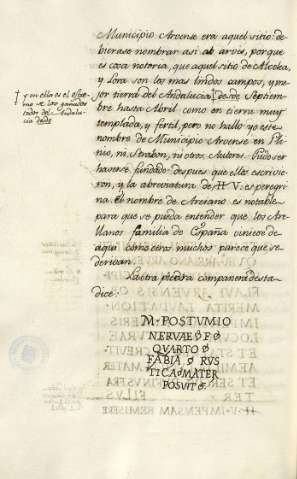 Municipio Arvense era aquel sitio de-
bierase nombrar asi ab arvis, porque
es cosa notoria, que aquel sitio de Alcolea,
y Lora son los mas lindos campos, y me-
jor tierra del Andalucia desde Septiembre
hasta Abril como en tierra muy
templada, y fertil, pero no hallo yo este
nombre de Municipio Arvense en Pli-
nio, ni Strabon, ni otros Autores. Pudo ser
haverse fundado despues que ellos escrivie-
ron, y la abreviatura de H V. es peregri-
na. el nombre de Arerano es notable
para que se pueda entender que los Are-
llanos familia de España viniese de
aqui como otros muchos parece que se
derivan.
La otra piedra compañera desta
dice:
M. POSTUMIO
NERVAE F
QUARTO
FABIA RUS
TICA MATER
POSUIT
y en ella es el
los ganados
todos del Andalu-
cia desde